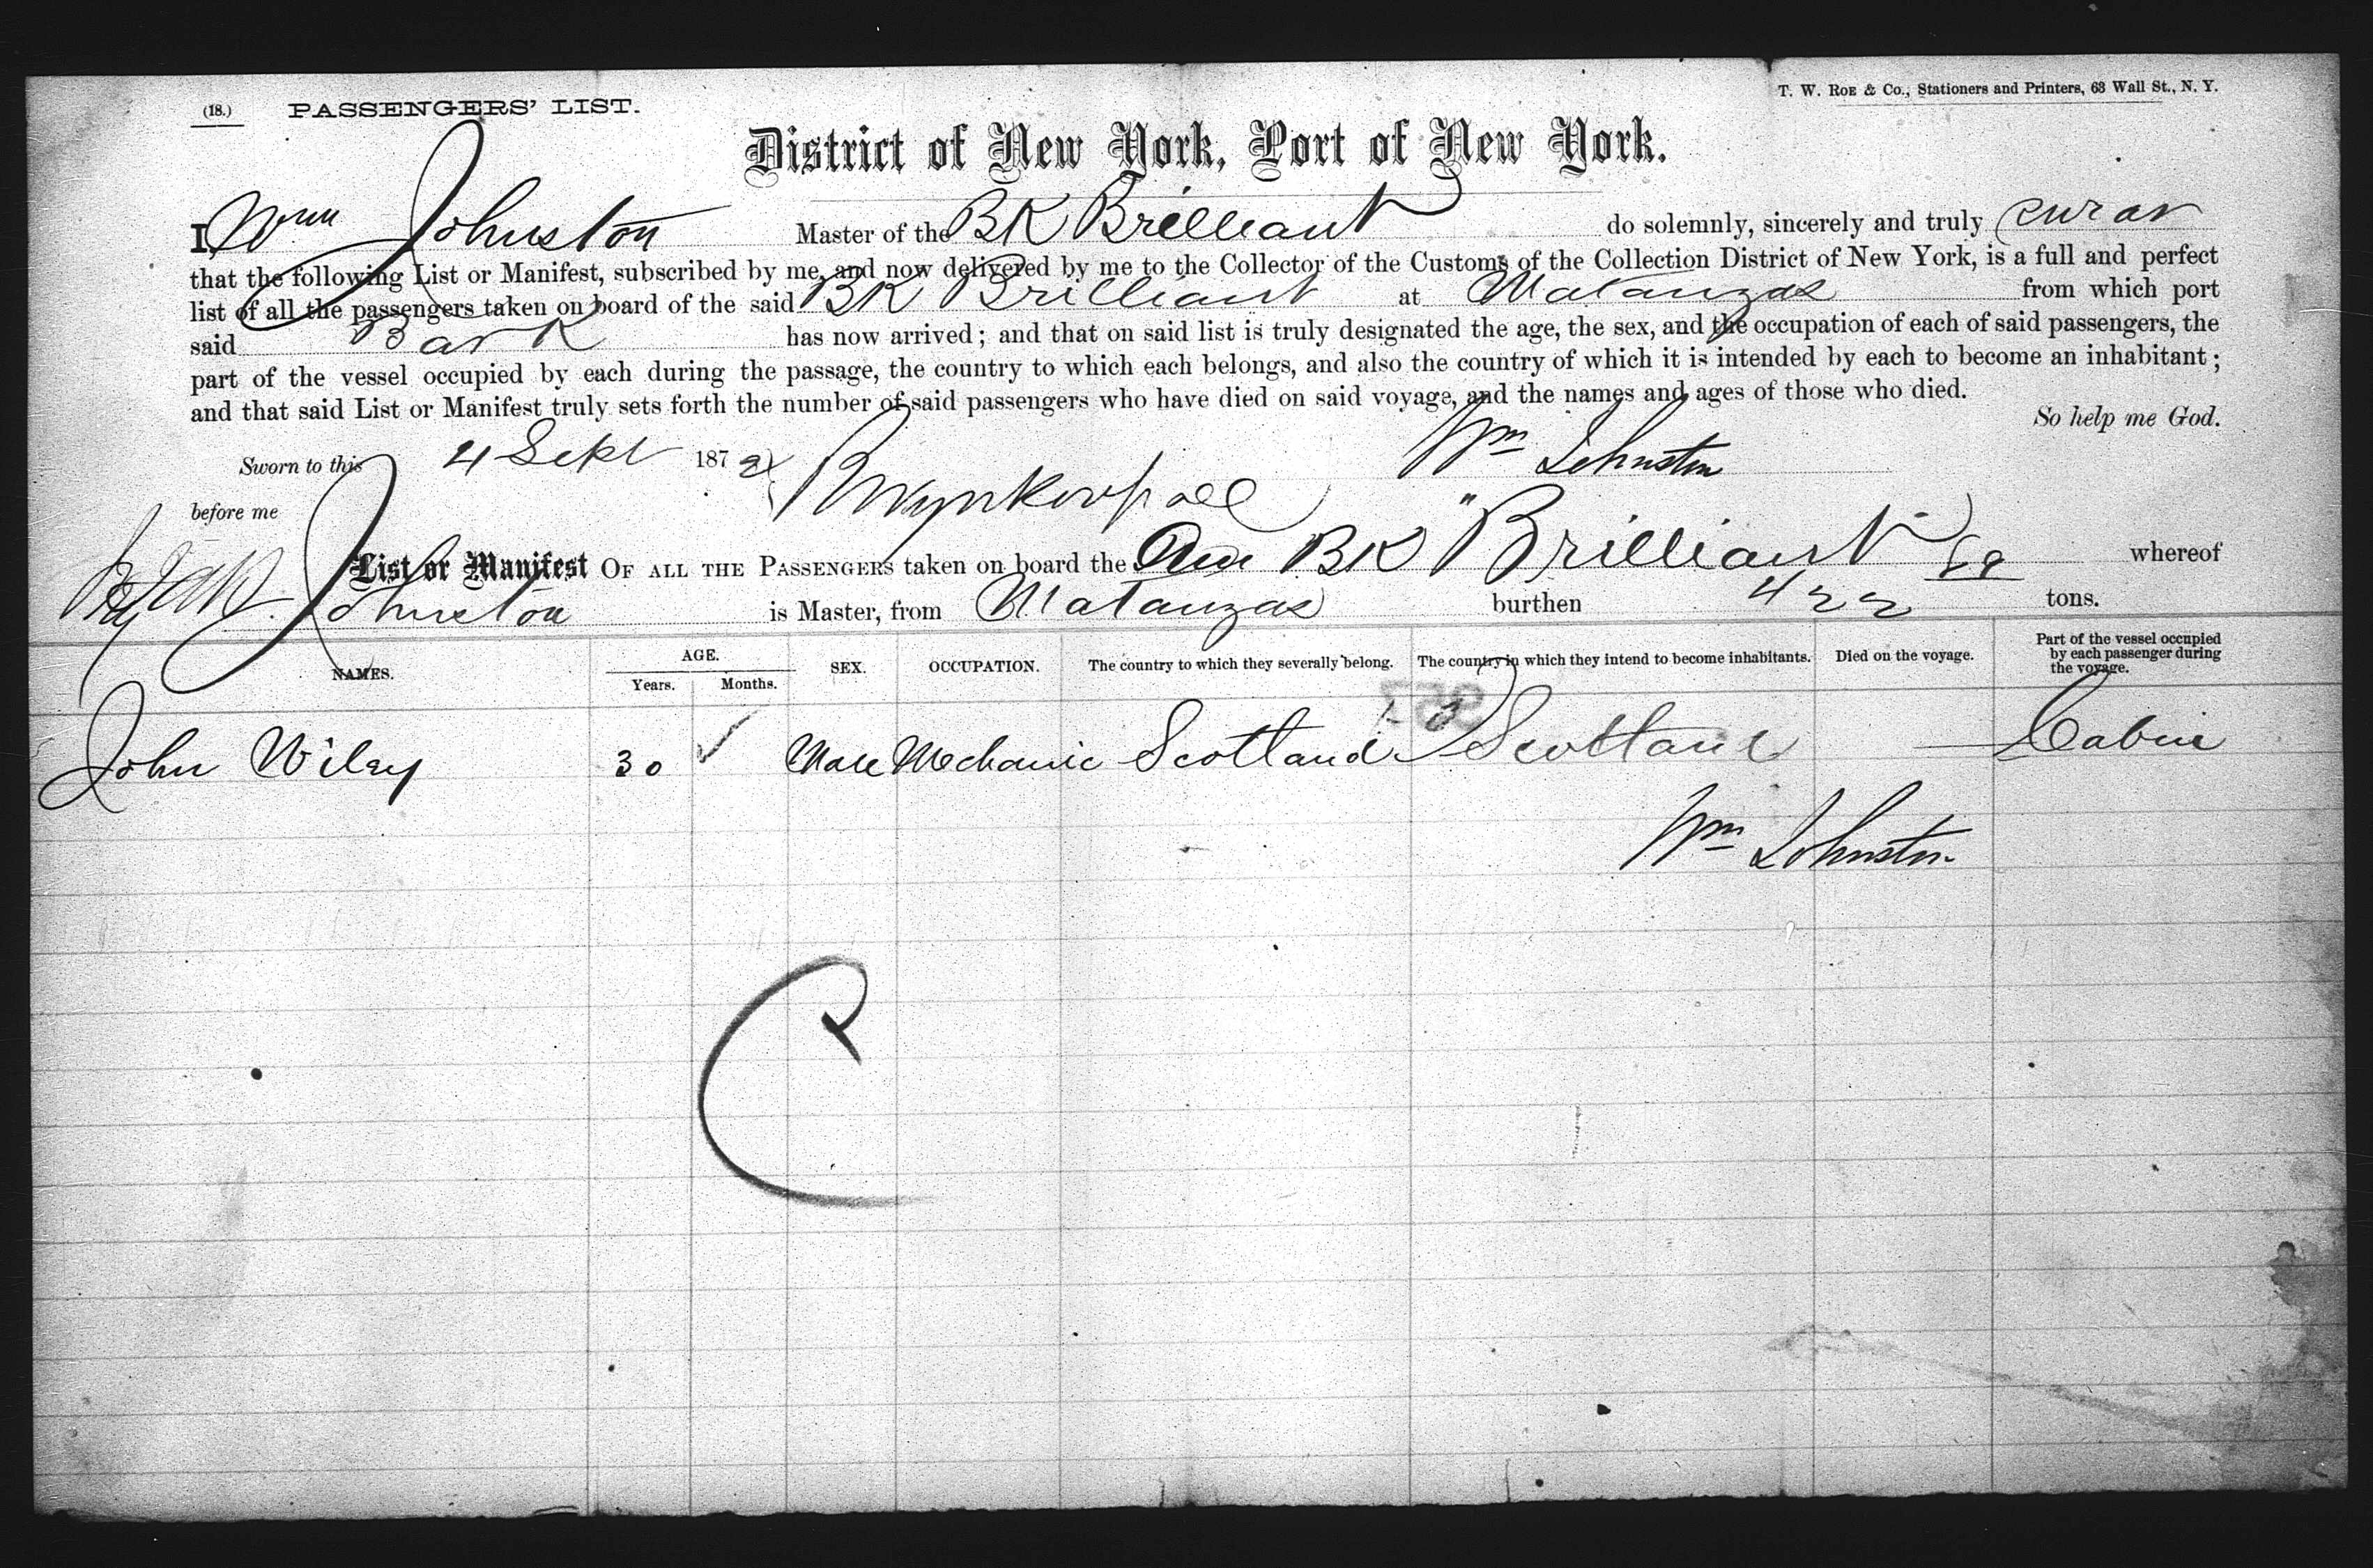 (18.) PASSENGERS' LIST.
T. W. ROE & Co., Stationers and Printers, 63 Wall St., N. Y.
District of New York, Port of New York.
I, Wm Johnston Master of the BK Brilliant do solemnly, sincerely and truly swear
that the following List or Manifest, subscribed by me, and now delivered by me to the Collector of the Customs of the Collection District of New York, is a full and perfect
list of all the passengers taken on board of the said BK Brilliant at Matanzas from which port
said Bark has now arrived; and that on said list is truly designated the age, the sex, and the occupation of each of said passengers, the
part of the vessel occupied by each during the passage, the country to which each belongs, and also the country of which it is intended by each to become an inhabitant;
and that said List or Manifest truly sets forth the number of said passengers who have died on said voyage, and the names and ages of those who died.
So help me God.
Sworn to this 4 Sept 1872 Wm Johnston
before me
List or Manifest OF ALL THE PASSENGERS taken on board the Am BK "Brilliant" whereof
Johnston is Master, from Matanzas burthen 422 tons.
NAMES. AGE. Years. Months. SEX. OCCUPATION. The country to which they severally belong. The country in which they intend to become inhabitants. Died on the voyage. Part of the vessel occupied by each passenger during the voyage.
John Wiley 30 Male Mechanic Scotland Scotland Cabin
Wm Johnston
C